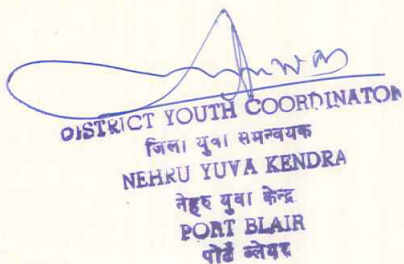 DISTRICT YOUTH COORDINATOR
जिला युवा समन्वयक
NEHRU YUVA KENDRA
नेहरु युवा केन्द्र
PORT BLAIR
पोर्ट ब्लेयर